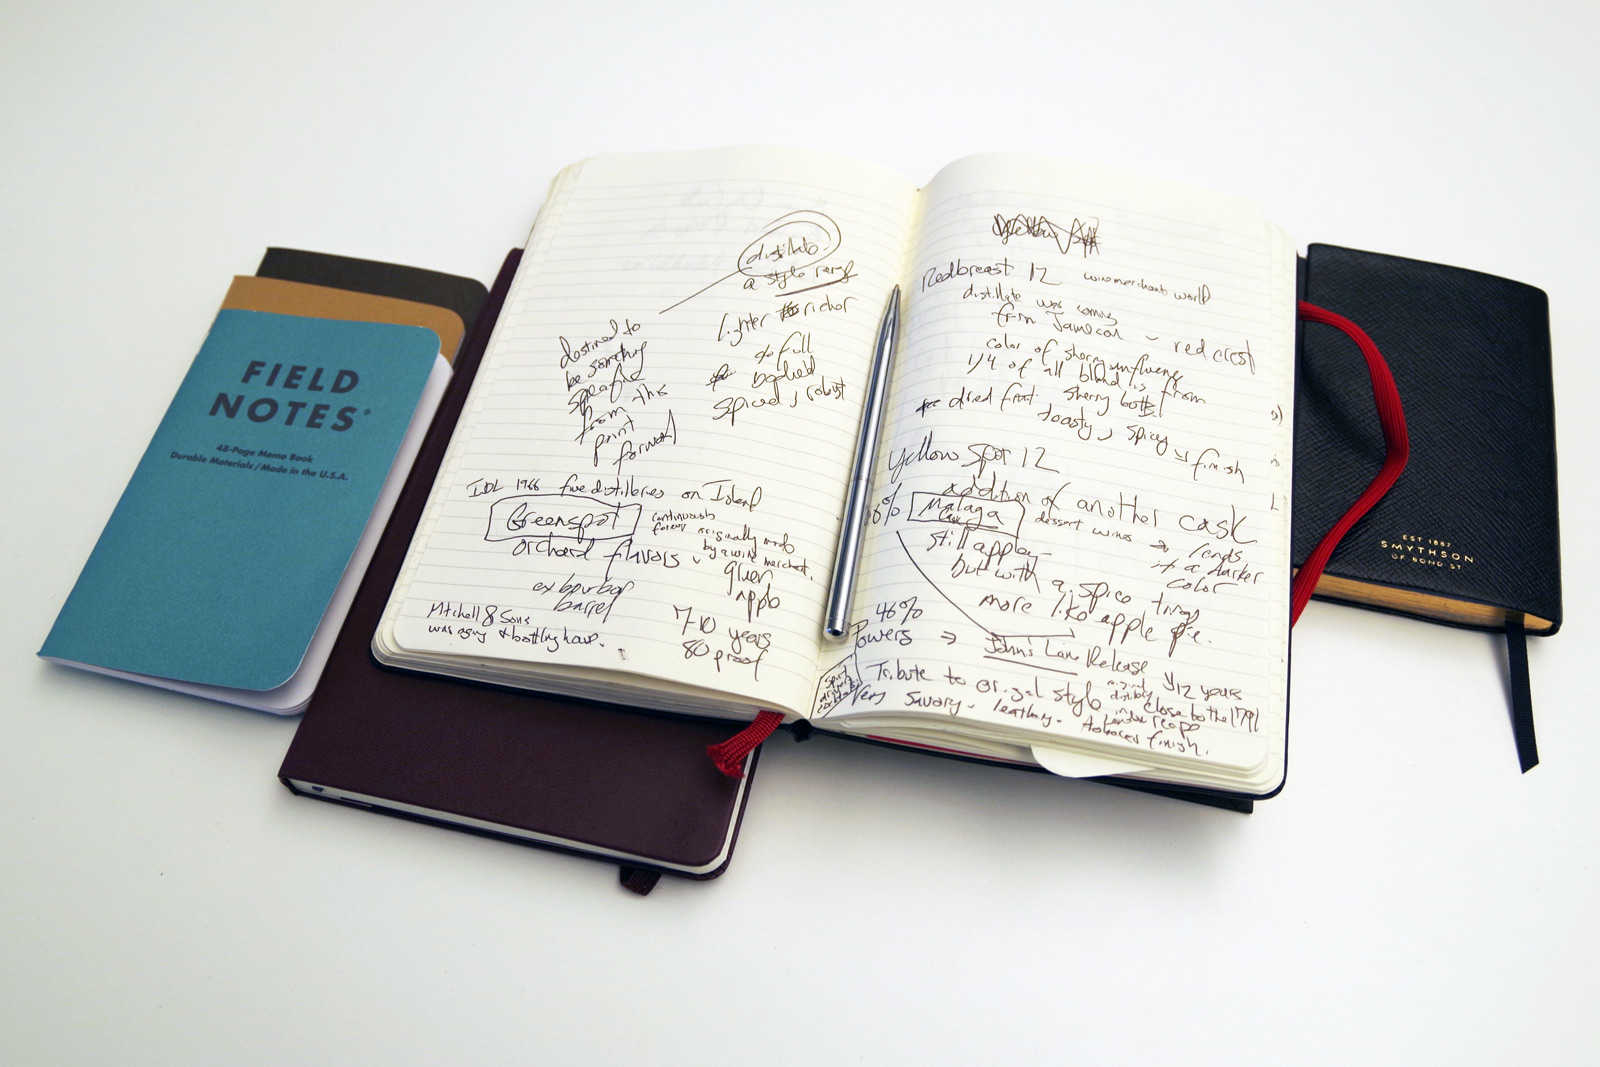 FIELD
NOTES
48-Page Memo Book
Durable Materials / Made in the U.S.A.
distillate
a style
lighter richer
full
bodied
spiced, robust
destined to
be something
specific
from this
point
forward
IDL 1966 five distilleries on Island
Greenspot
continuously
originally made
by a wine merchant.
orchard flavors
green
apple
ex bourbon
barrel
7-10 years
80 proof
Mitchell & Sons
was aging & bottling house.
Redbreast 12 winemerchant world
distillate was coming
from Jameson red crest
color of sherry influence
1/4 of all blend is from
sherry butts
dried fruit
toasty, spicy finish
Yellow Spot 12
addition of another cask
Malaga
Cask
dessert wines → lends
it a darker
color
still appley
but with a spice
more like apple pie.
46%
Powers ⇒ John's Lane Release 12 years
Tribute to original style
original
distillery close to the 1791
Very savory. leathery.
tobacco finish.
EST 1887
SMYTHSON
OF BOND ST